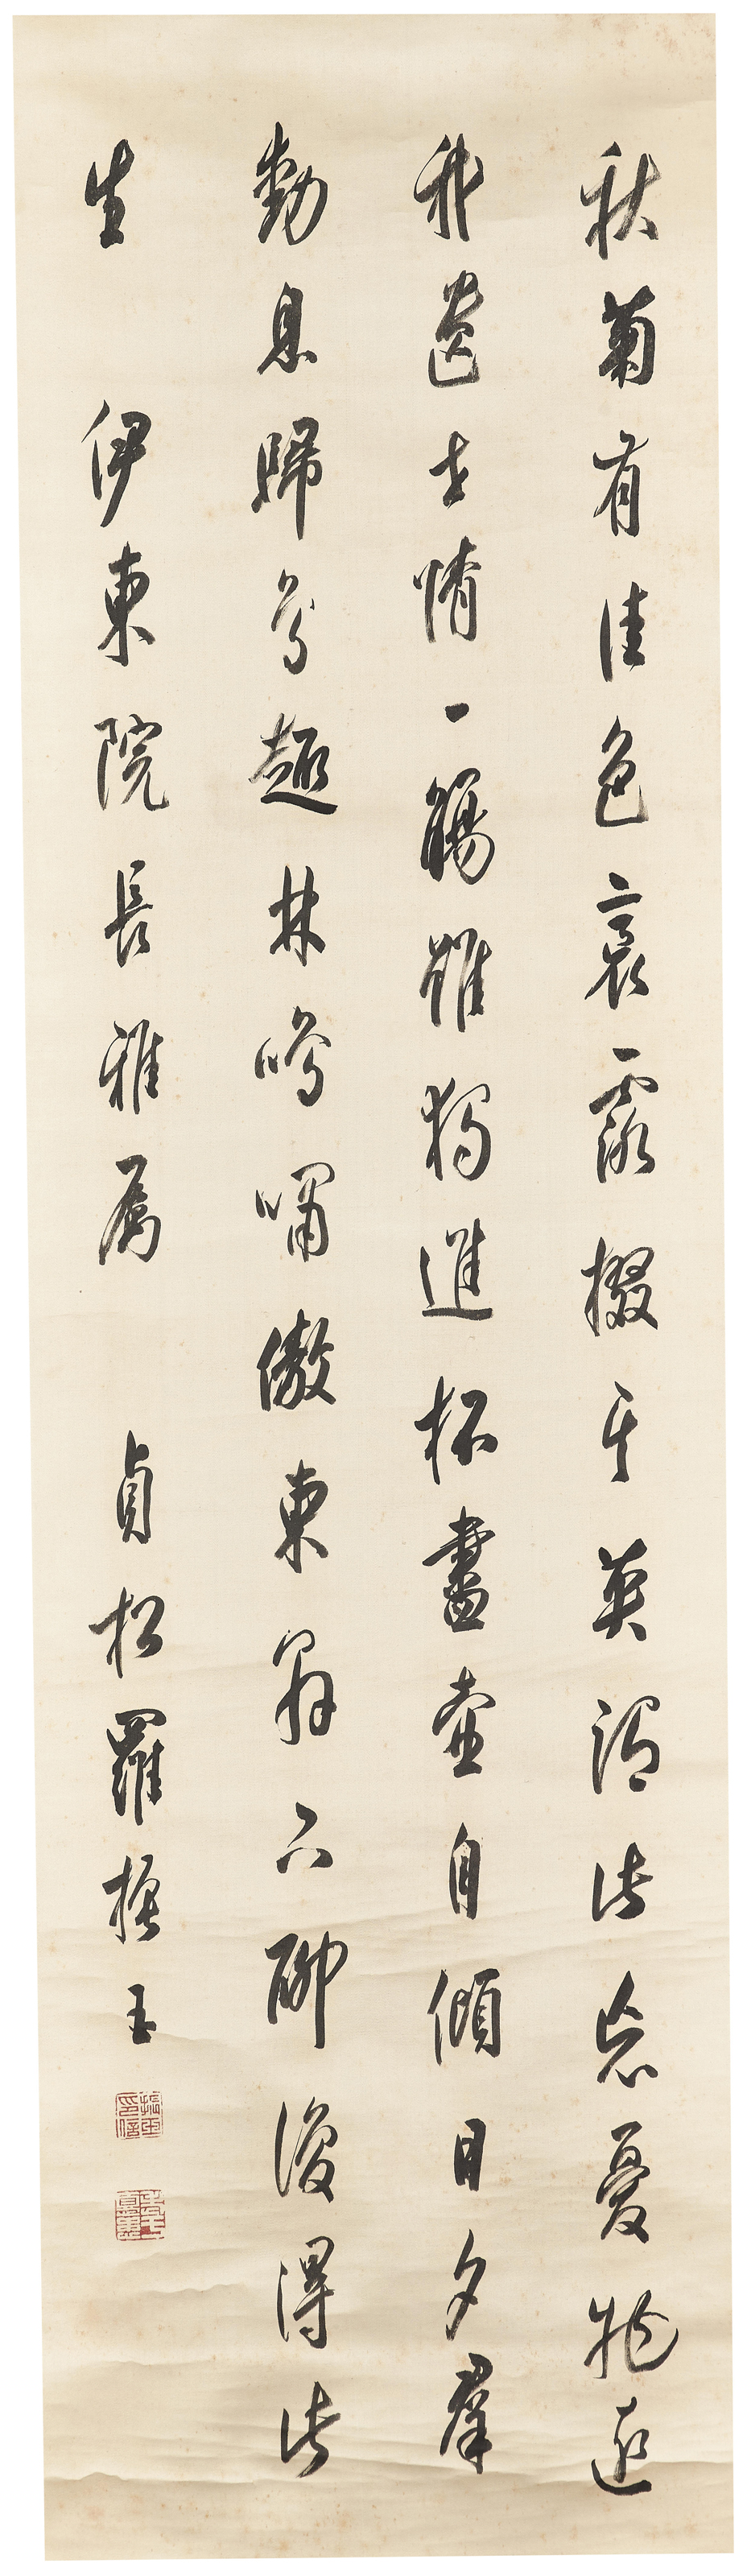 秋菊有佳色裛露掇其英此忘憂物遠
我遺世情一觴雖獨進杯盡壺自傾日夕羣
動息歸鳥趨林鳴嘯傲東軒下聊復得此
生 伊東院長雅屬 貞松羅振玉
振玉印信